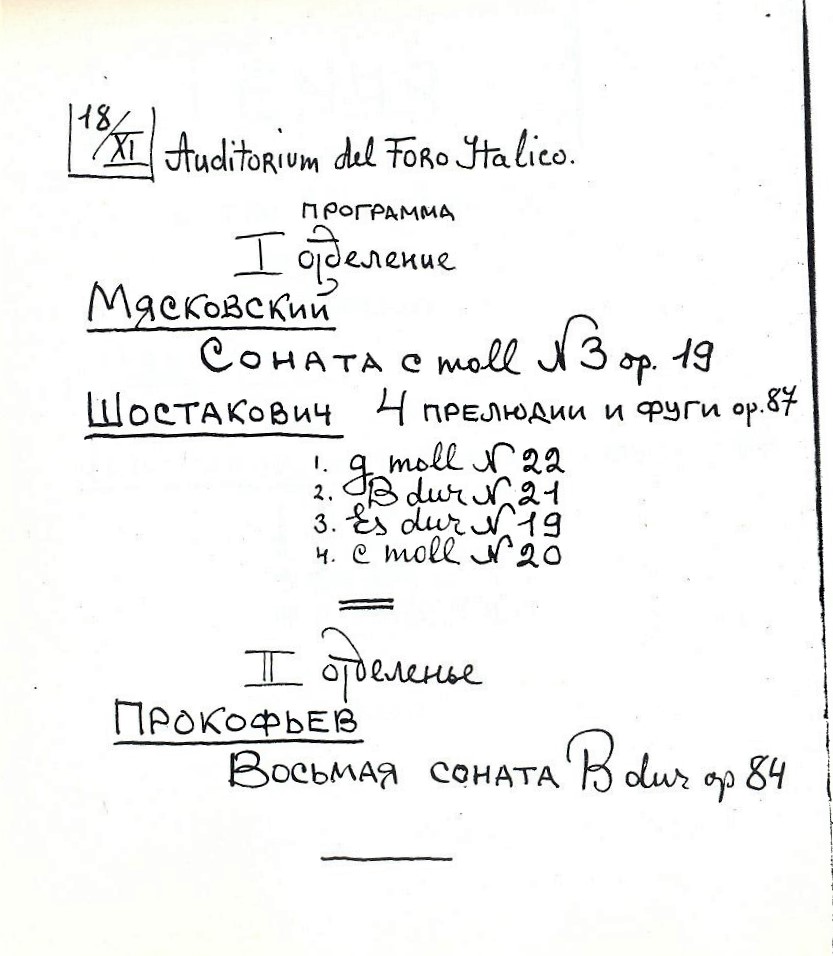 18/XI Auditorium del Foro Italico.
ПРОГРАММА
I отделение
Мясковский
Соната c moll N3 op. 19
Шостакович 4 прелюдии и фуги op.87
1. g moll N 22
2. B dur N 21
3. Es dur N 19
4. c moll N 20
II отделенье
Прокофьев
Восьмая соната B dur op 84